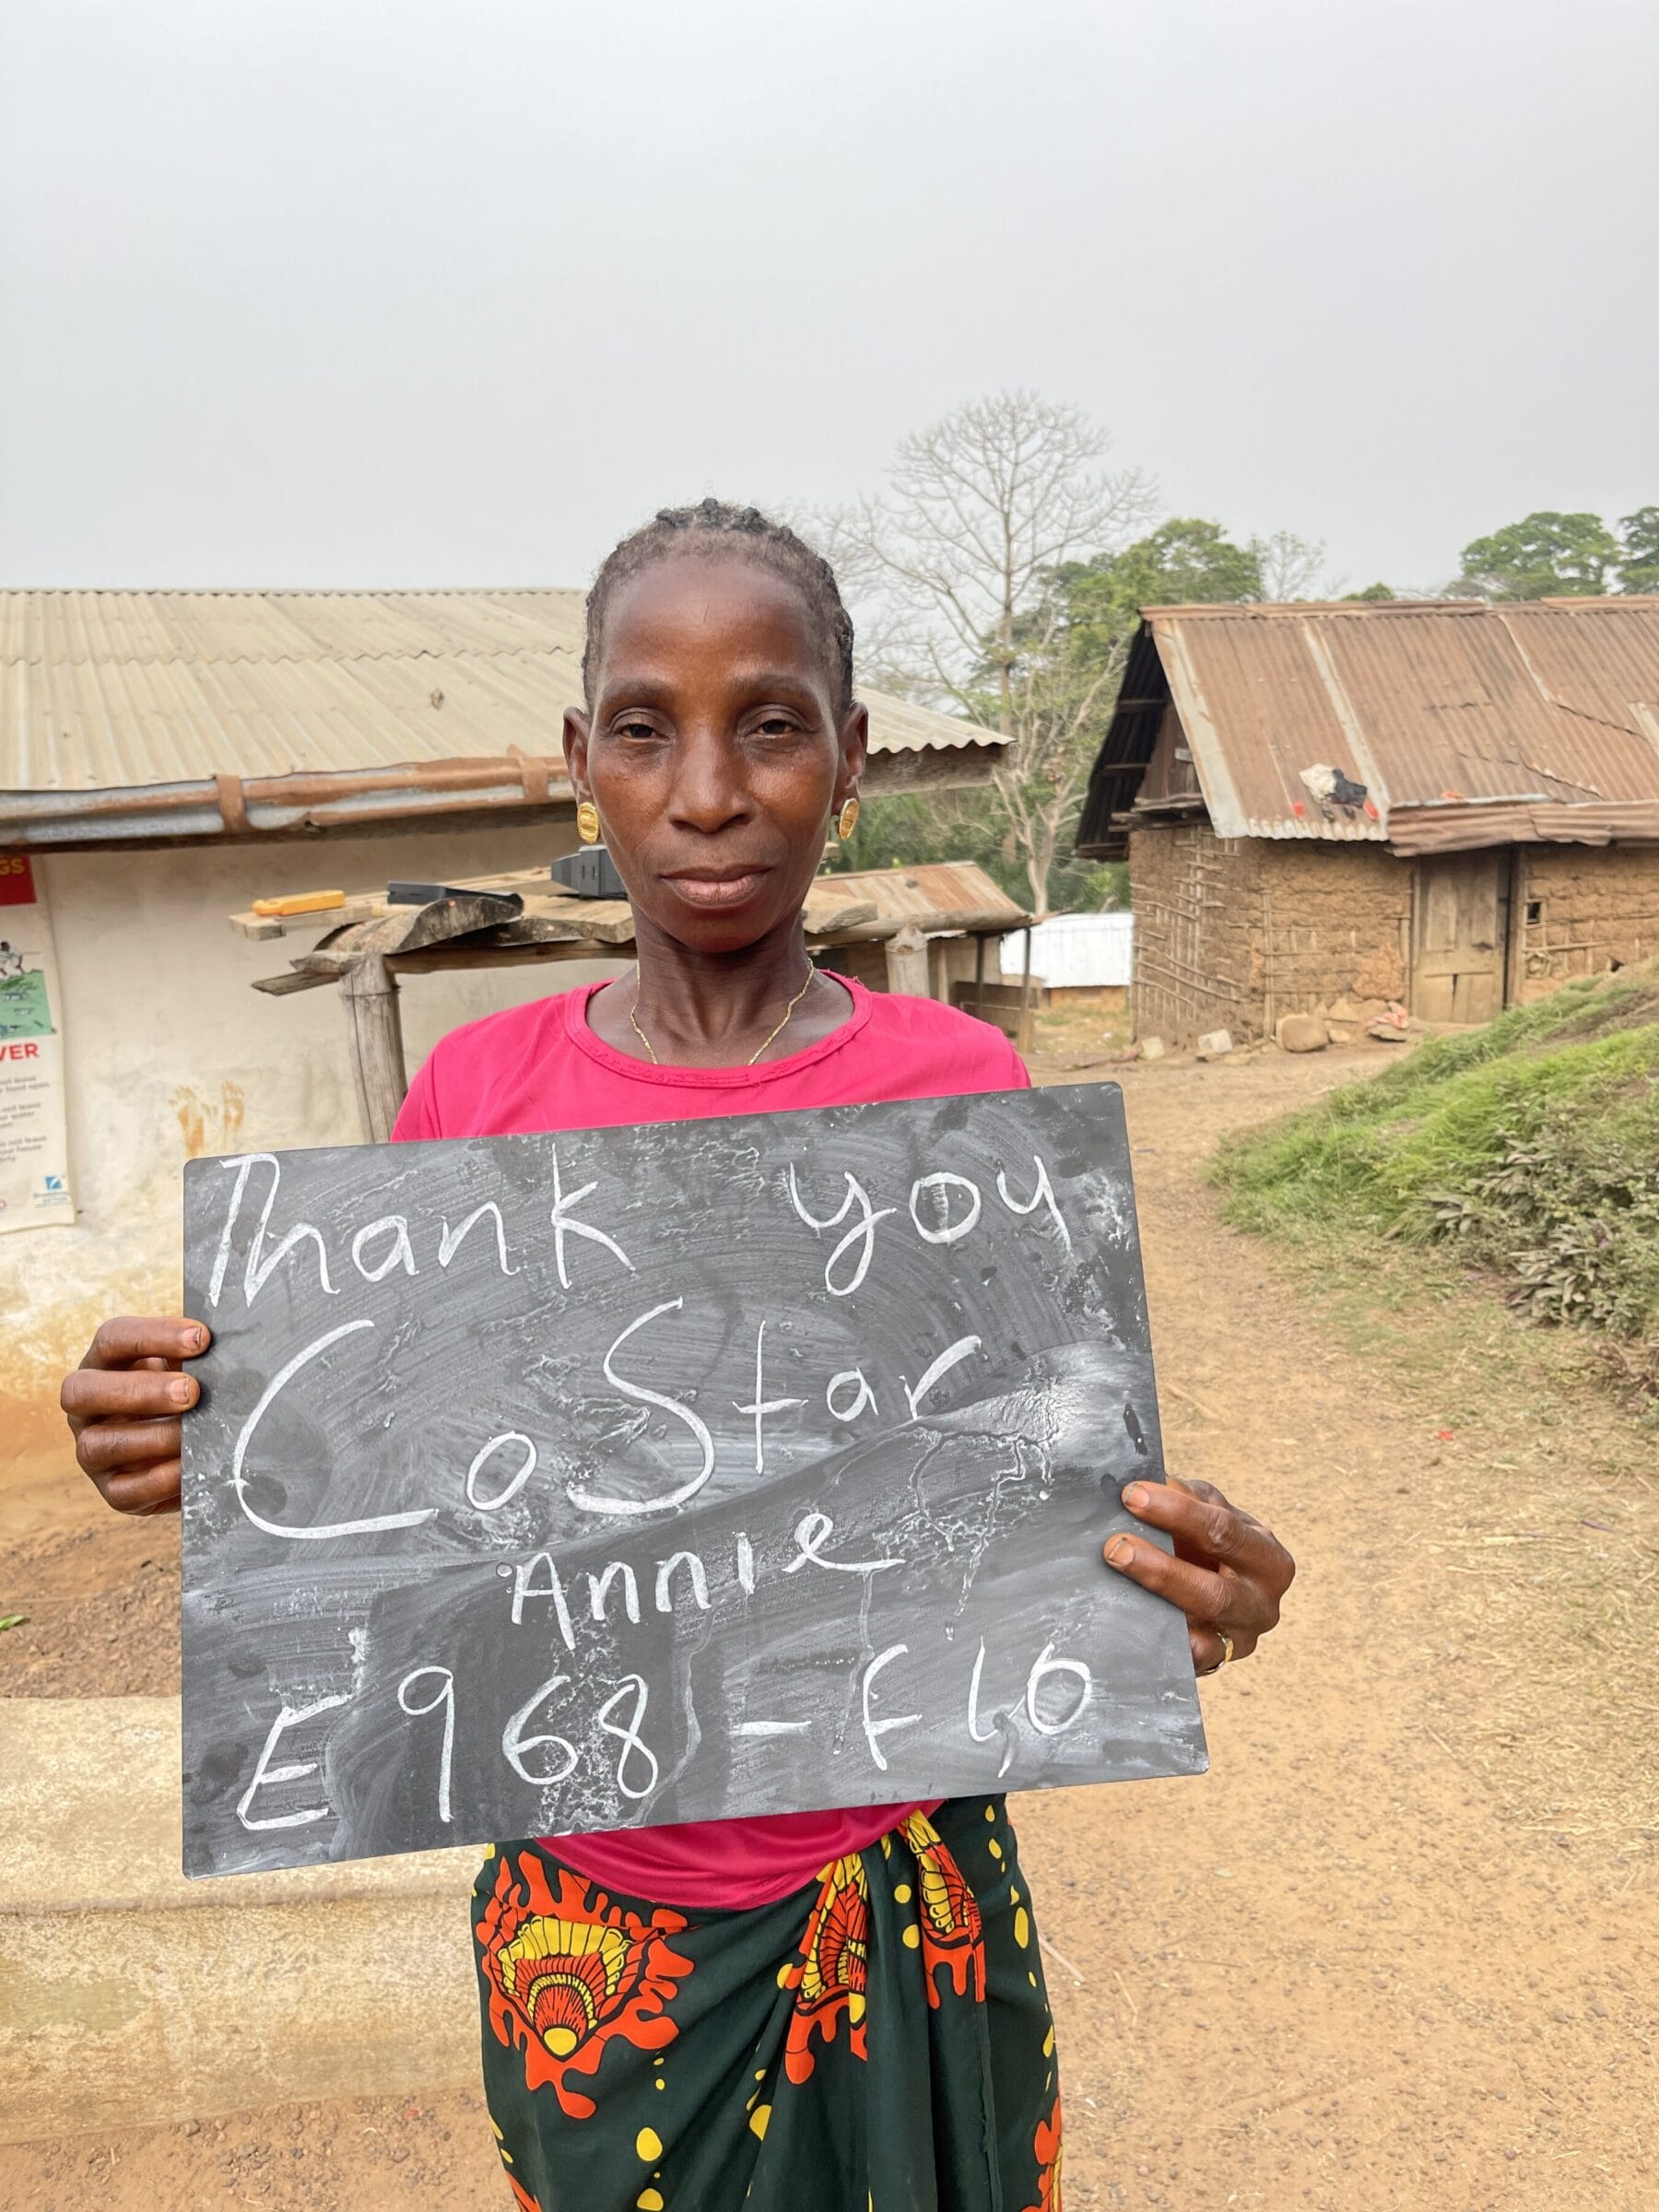 Thank you
CoStar
Annie
E968-F1,0
GS
VER